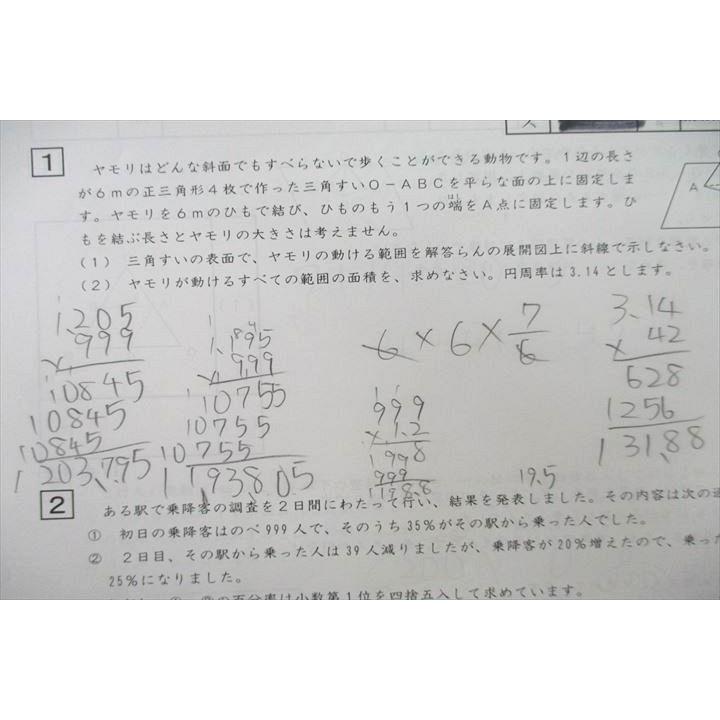 1
ヤモリはどんな斜面でもすべらないで歩くことができる動物です。1辺の長さ
が6mの正三角形4枚で作った三角すいO－ABCを平らな面の上に固定しま
す。ヤモリを6mのひもで結び、ひものもう1つの端をA点に固定します。ひ
はし
もを結ぶ長さとヤモリの大きさは考えません。
A
(1) 三角すいの表面で、ヤモリの動ける範囲を解答らんの展開図上に斜線で示しなさい。
(2) ヤモリが動けるすべての範囲の面積を、求めなさい。円周率は3.14とします。
1.205
× 999
10845
10845
10845
1203.795
1.195
× 999
10755
10755
10755
1193805
6 × 6 × 7/6
999
× 1.2
1998
999
1198.8
3.14
× 42
628
1256
131.88
19.5
2
ある駅で乗降客の調査を2日間にわたって行い、結果を発表しました。その内容は次の
① 初日の乗降客はのべ999人で、そのうち35%がその駅から乗った人でした。
② 2日目、その駅から乗った人は39人減りましたが、乗降客が20%増えたので、乗っ
25%になりました。
の百分率は小数第1位を四捨五入して求めています。